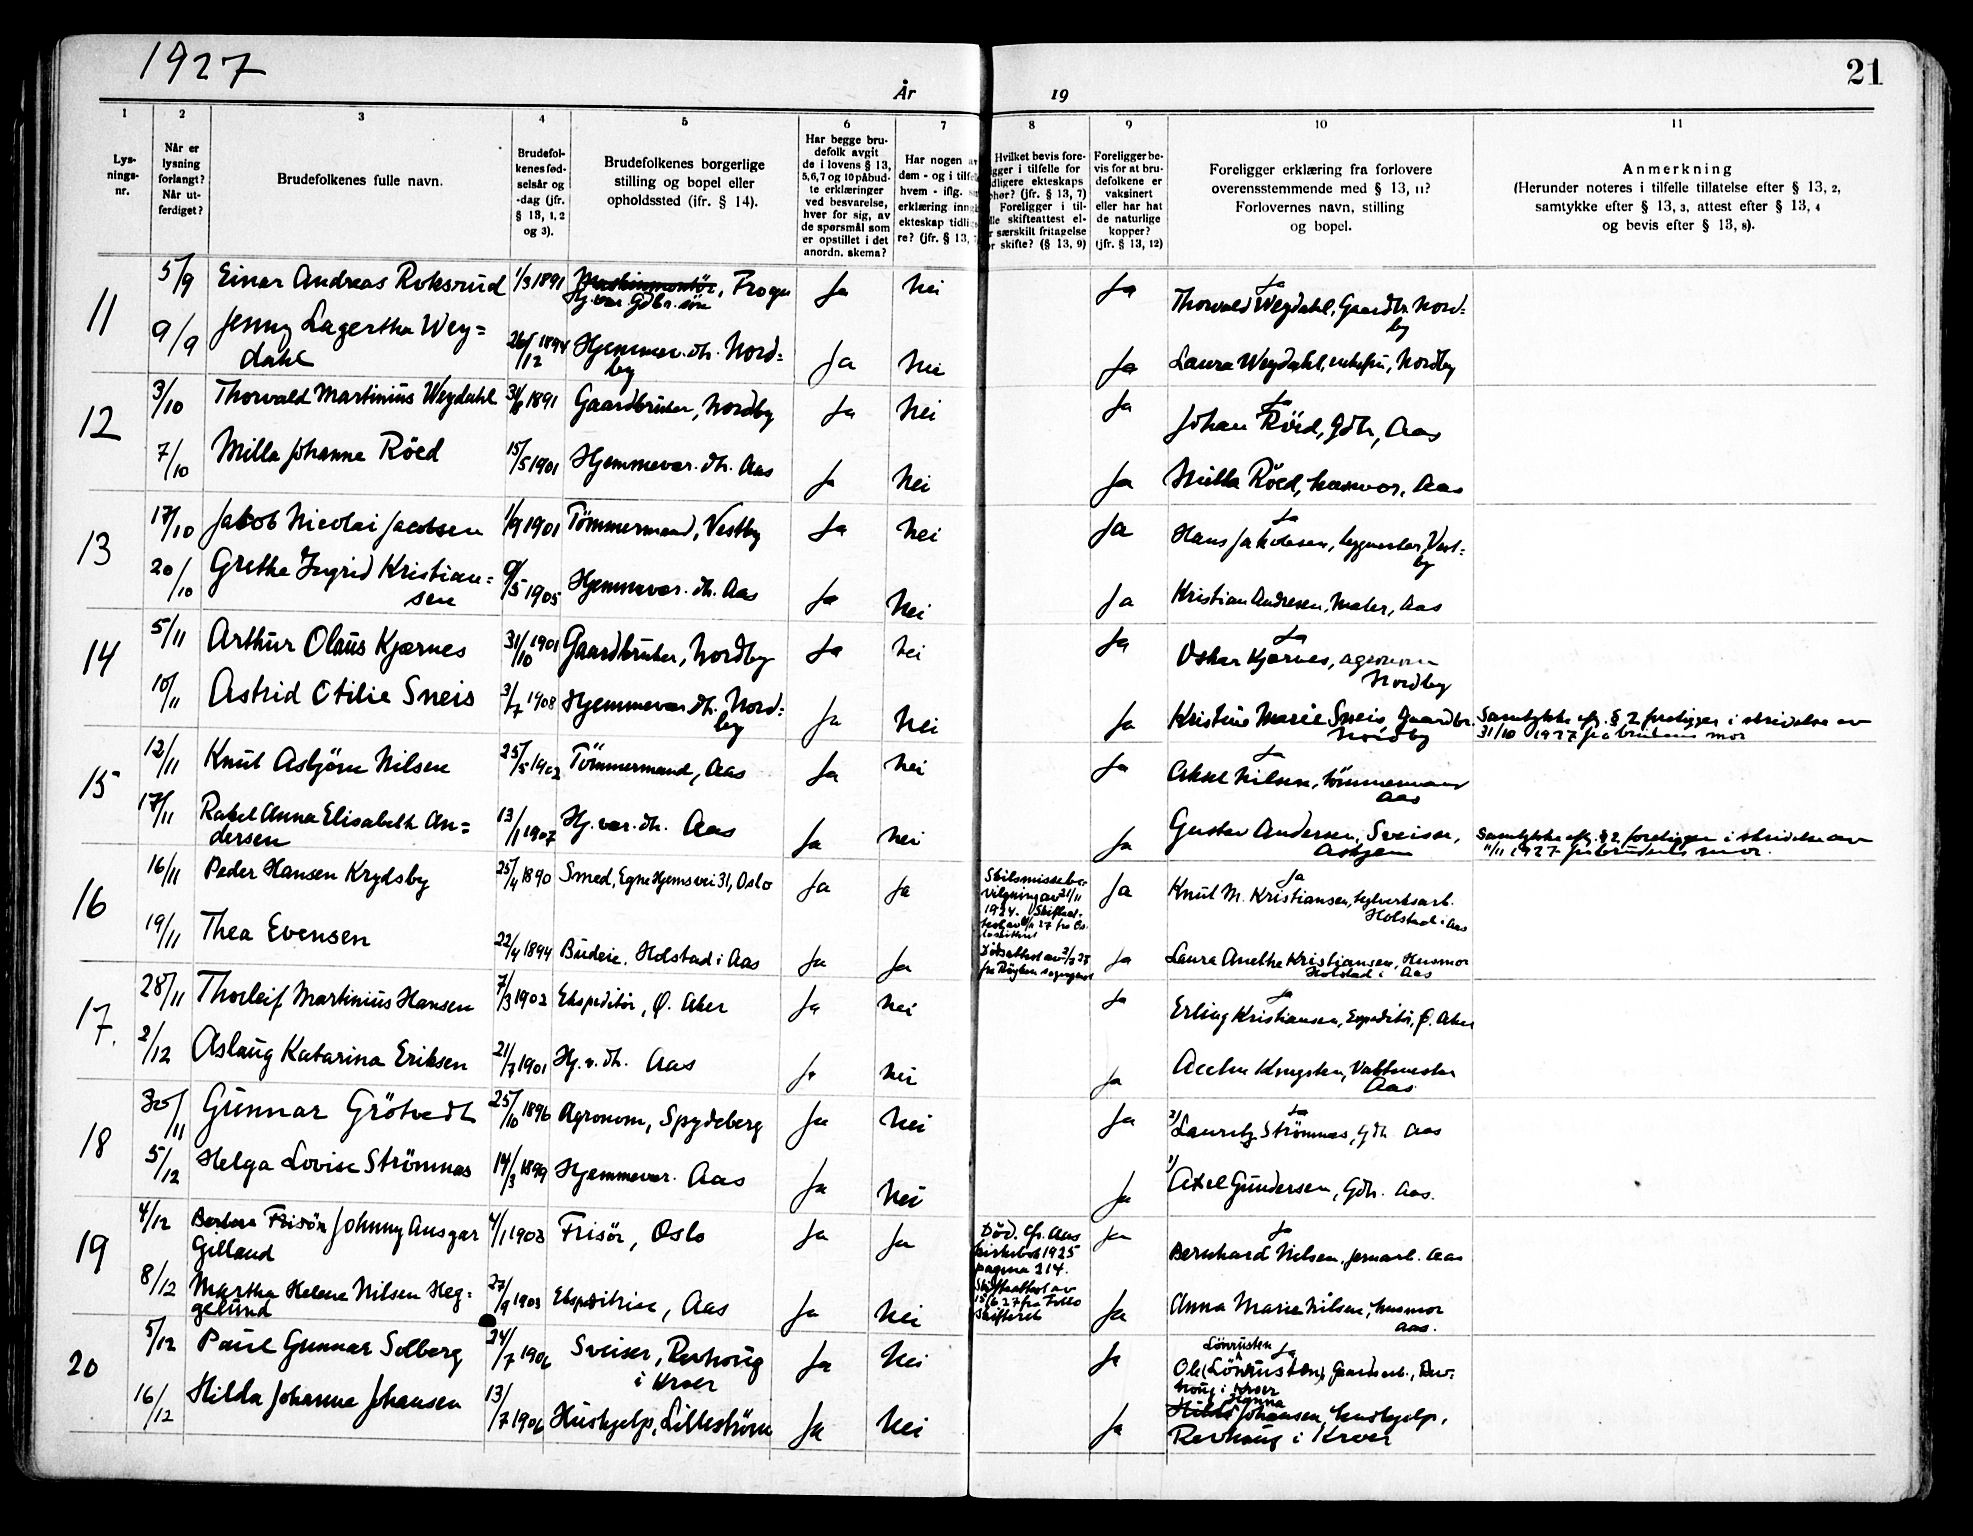 1927
År
19
21
1
2
3
4
5
6
7
8
9
10
11
Lys-
nings-
nr.
Når er
lysning
forlangt?
Når ut-
ferdiget?
Brudefolkenes fulle navn.
Brudefol-
kenes fød-
selsår og
-dag (jfr.
§ 13, 1, 2
og 3).
Brudefolkenes borgerlige
stilling og bopel eller
opholdssted (ifr. § 14).
Har begge bru-
defolk avgit
de i lovens § 13,
5, 6, 7 og 10 påbud-
te erklæringer
ved besvarelse,
hver for sig, av
de spørsmål som
er opstillet i det
anordn. skema?
Har nogen av
dem - og i tilfe
hvem - iflg. s
erklæring inng
ekteskap tidlig
re? (jfr. § 13, 7
Hvilket bevis fore-
igger i tilfelle for
dligere ekteskaps
phør? (jfr. § 13, 7)
Foreligger i til-
lle skifteattest el-
r særskilt fritagelse
or skifte? (§ 13, 9)
Foreligger be-
vis for at bru-
defolkene er
vaksinert
eller har hat
de naturlige
kopper?
(jfr. § 13, 12)
Foreligger erklæring fra forlovere
overensstemmende med § 13, 11?
Forlovernes navn, stilling
og bopel.
Anmerkning
(Herunder noteres i tilfelle tillatelse efter § 13, 2,
samtykke efter § 13, 3, attest efter § 13, 4
og bevis efter § 13, 8).
11
5/9 Einar Andreas Roksrud 1/3 1891 Maskinmontør, Frogn Ja Nei Ja Ja
Hj.var. Gdbr. søn
Thorvald Weydahl, Gaardbr. Nord=
by
9/9 Jenny Lagertha Wey=
dahl 26/12 1894 Hjemmev. dtr. Nord=
by Ja Nei Ja Laura Weydahl, enkefru, Nordby
12
3/10 Thorvald Martinius Weydahl 1891 Gaardbruker, Nordby Ja Nei Ja Ja
Johan Röed, Gdbr, Aas
7/10 Milla Johanne Röed 15/5 1901 Hjemmevær. dtr. Aas Ja Nei Ja Milla Röed, husmor, Aas
13
17/10 Jakob Nicolai Jacobsen 1/9 1901 Tömmermand, Vestby Ja Nei Ja Ja
Hans Jakobsen, bygmester, Vest=
by
20/10 Grethe Ingrid Kristian=
sen 9/5 1905 Hjemmevær. dtr. Aas Ja Nei Ja Kristian Andresen, Maler, Aas
14
5/11 Arthur Olaus Kjærnes 31/10 1901 Gaardbruker, Nordby Ja Nei Ja Ja
Oskar Kjærnes, agronom
Nordby
10/11 Astrid Otilie Sneis 3/7 1908 Hjemmevær dtr. Nord=
by Ja Nei Ja Kristine Marie Sneis, Gaardbr.
Nordby
Samtykke efr. § 2 foreligger i skrivelse av
31/10 1927 fra brudens mor
15
12/11 Knut Asbjørn Nilsen 25/5 1902 Tömmermand, Aas Ja Nei Ja Ja
Aksel Nilsen, tömmermann
Aas
17/11 Rakel Anna Elisabeth An=
dersen 13/1 1907 Hj. vær. dtr. Aas Ja Nei Ja Gustav Andersen, Sveiser,
Askjem
Samtykke efr. § 2 foreligger i skrivelse av
11/11 1927 fra brudens mor.
16
16/11 Peder Hansen Krydsby 25/4 1890 Smed, Egne Hjemsvei 31, Oslo Ja Ja
Skilsmissebe-
vilgning av 21/11
1924. Skifteat-
Ja Ja
Knut M. Kristiansen, teglverksarb.
Holstad i Aas
19/11 Thea Evensen 22/4 1894 Budeie, Holstad i Aas Ja Ja
Dödsattest av
fra Röyken sogneprest
Ja Laura Anethe Kristiansen, Husmor
Holstad i Aas
17.
28/11 Thorleif Martinius Hansen 7/3 1902 Ekspeditör, Ø. Aker Ja Nei Ja Ja
Erling Kristiansen, Expeditör, Ø. Aker
2/12 Aslaug Katarina Eriksen 21/7 1901 Hj. v. dtr. Aas Ja Nei Ja
Aas
18
30/11 Gunnar Grötvedt 25/10 1896 Agronom, Spydeberg Ja Nei Ja Ja
2) Lauritz Strömnes, Gdbr. Aas
5/12 Helga Lovise Strömnes 14/3 1899 Hjemmevær. Aas Ja Nei Ja 1) Axel Gundersen, Gdbr. Aas.
19
4/12 Frisör Johnny Ansgar
Gilland 4/1 1903 Frisör, Oslo Ja Ja
Död. Cfr. Aas
kirkebok 1925
pagina 214.
Skifteattest av
15/6 27 fra Follo
skifteret
Ja Ja
Bernhard Nilsen, jernarb. Aas
8/12 Martha Helene Nilsen Heg=
gelund 27/9 1903 Ekspeditrise, Aas Ja Nei Ja Anna Marie Nilsen, husmor
Aas.
20
5/12 Paul Gunnar Solberg 24/7 1906 Sveiser, Revhoug
i Kroer Ja Nei Ja Lönrusten Ja
Ole (Lönrusten), Gaardsarb., Rev-
houg i Kroer
16/12 Hilda Johanne Johansen 13/7 1906 Hushjelp, Lilleström Ja Nei Ja Hanna
Hilda Johansen, hushjelp,
Revhoug i Kroer